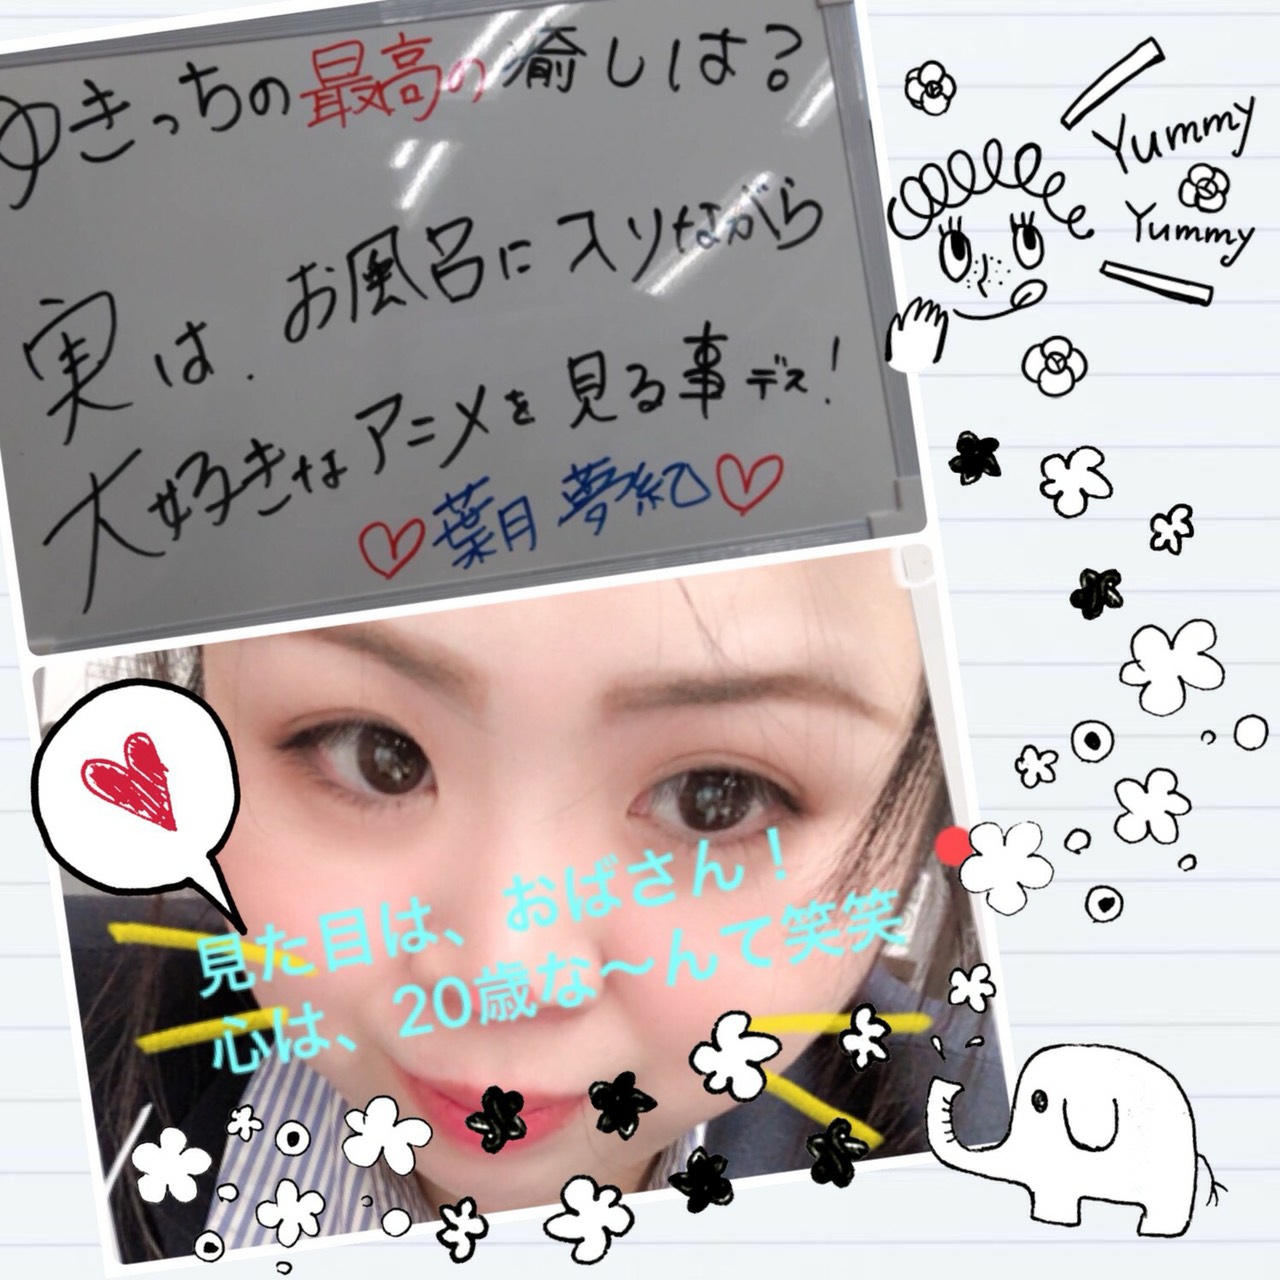 ゆきっちの最高の癒しは?
実は、お風呂に入りながら
大好きなアニメを見る事デス!
葉月 夢紀
Yummy
Yummy
見た目は、おばさん!
心は、20歳な〜んて笑笑